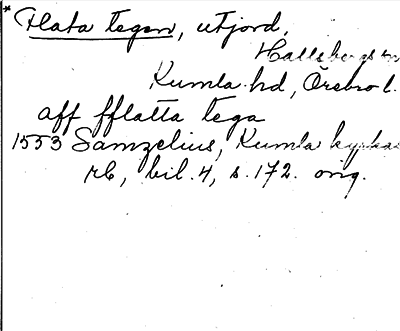 * Flata tegen, utjord,
Hallsbergs sn
Kumla hd, Örebro l.
aff fflatta tega
1553 Samzelius, Kumla kyrkas
rb, bil. 4, s. 172. orig.